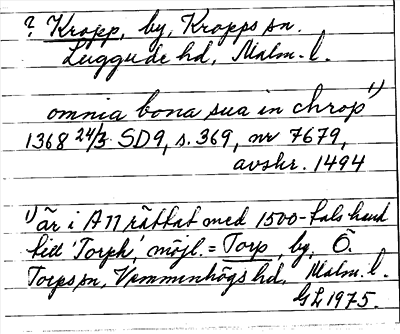 ? Kropp, by, Kropps sn.
Luggude hd, Malm. l.
omnia bona sua in chrop 1)
1368 24/3 SD9, s. 369, nr 7679,
avskr. 1494
1) är i A 17 rättat med 1500-talshand
till 'Torph', möjl. = Torp, by, Ö.
Torps sn, Vemmenhögs hd, Malm. l.
GL 1975.